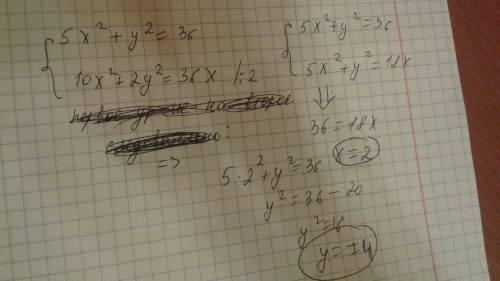 5x² + y² = 36
10x² + 2y² = 36x |:2
=>
5x² + y² = 36
5x² + y² = 18x
⇓
36 = 18x
x = 2
5·2² + y² = 36
y² = 36 - 20
y² = 16
y = ±4